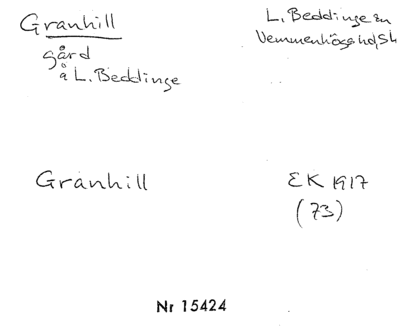 Granhill
gård
å L. Beddinge
L. Beddinge sn
Vemmenhögs hd, Sk
Granhill
EK 1917
(73)
Nr 15424